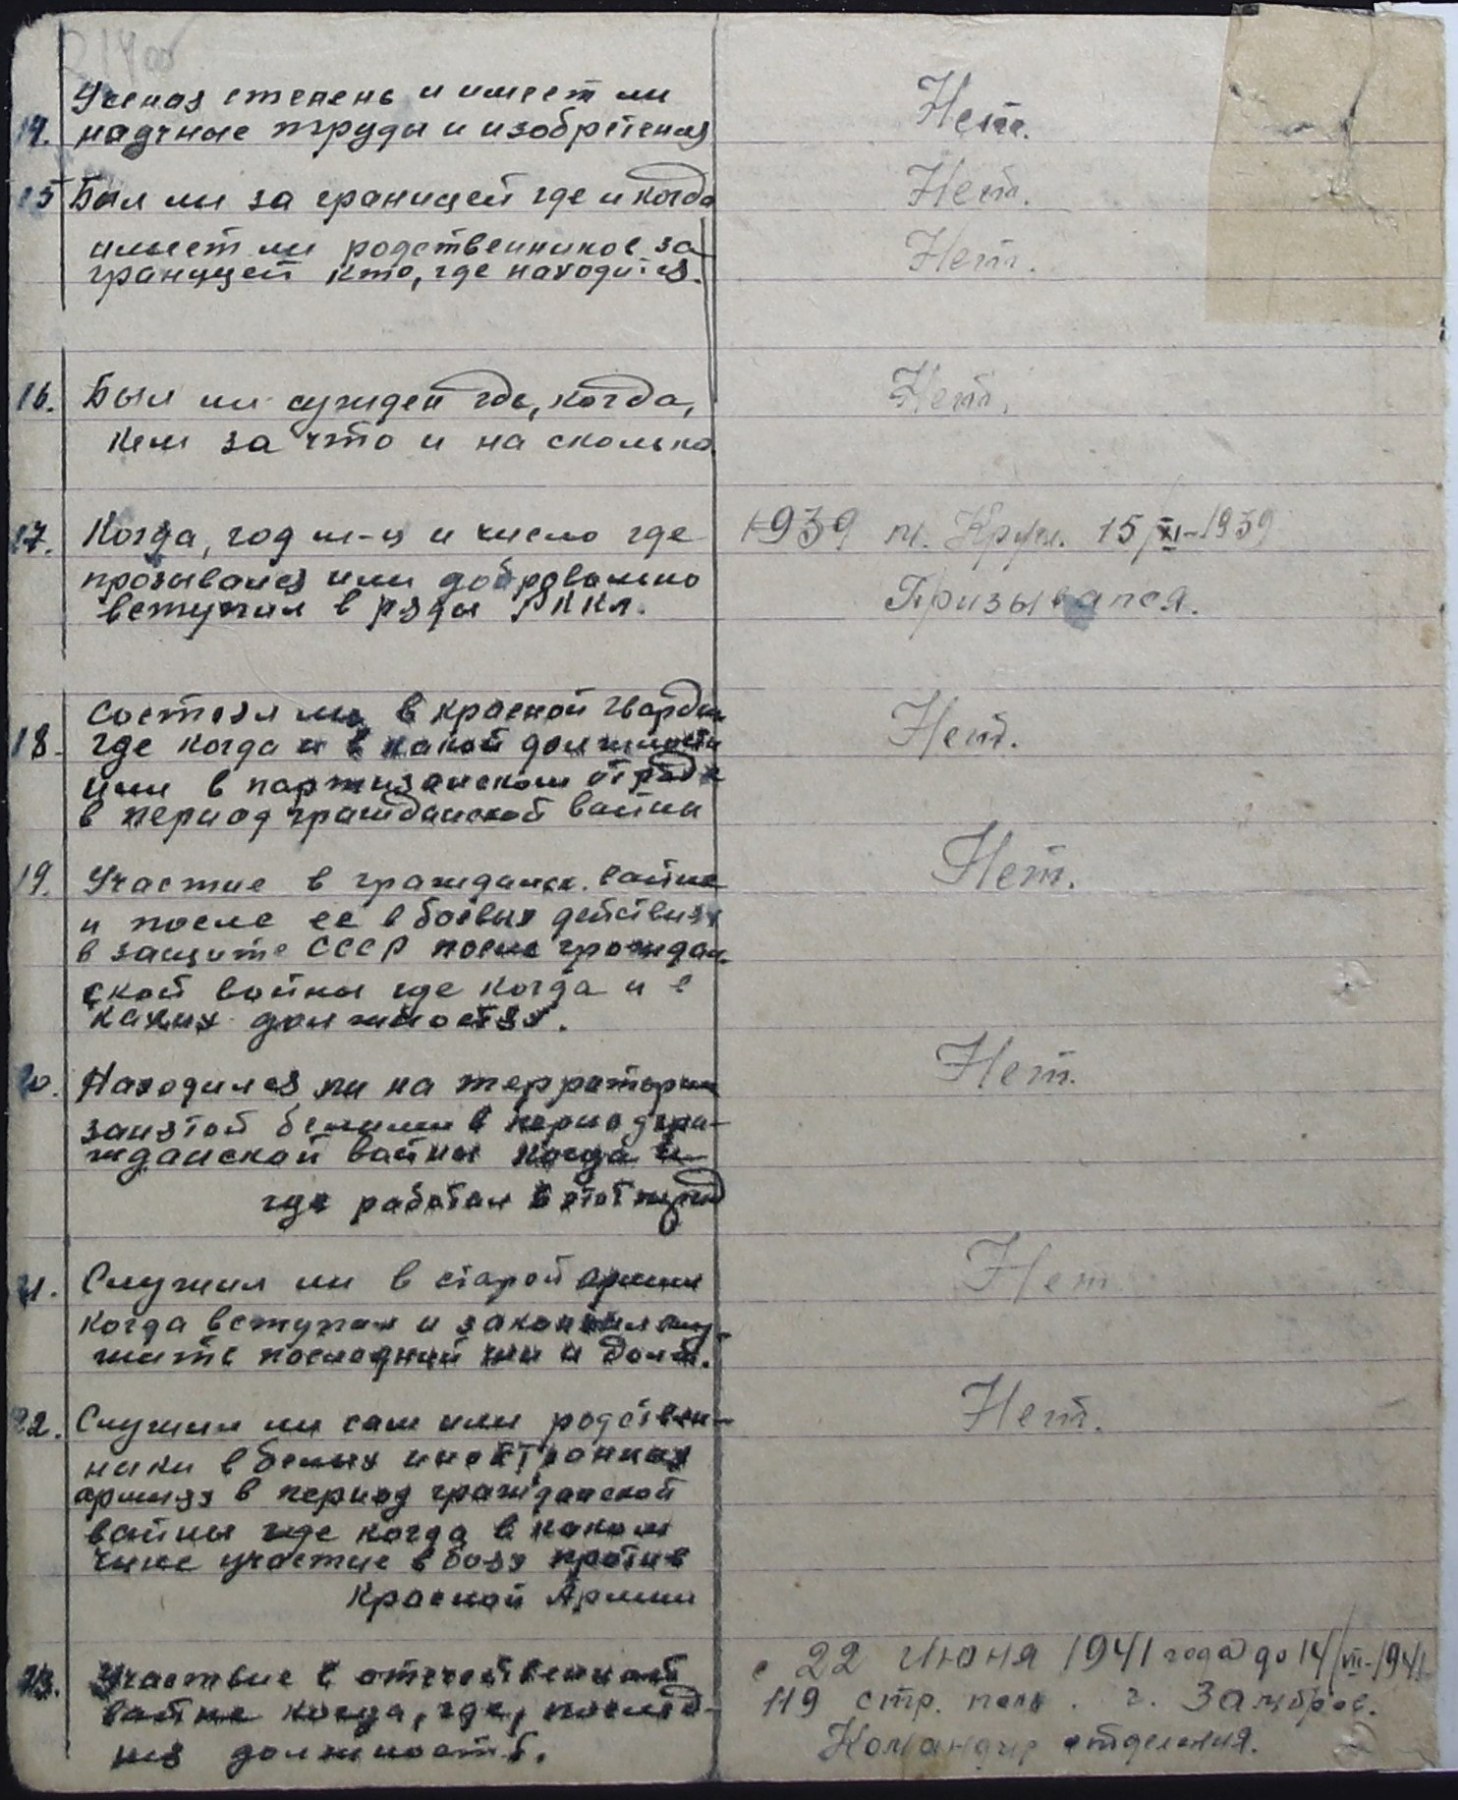 Ученая степень и имеет ли
14. научные труды и изобретения
Нет.
15 Был ли за границей где и когда
Нет.
имеет ли родственников за
границей кто, где находится.
Нет.
16. Был ли сужден где, когда,
кем за что и на сколько
Нет.
17. Когда, год м-ц и число где
прозывался или добровольно
вступил в ряды РККА.
1939 м. Крум. 15/XI-1939
Призывался.
Состоял ли в красной гвардии
18. где когда и в какой должности
или в партизанском отряде
в период гражданской войны
Нет.
19. Участие в гражданск. войне
и после ее в боевых действиях
в защите СССР после граждан
ской войны где когда и в
каких должностях.
Нет.
20. Находился ли на территории
занятой белыми в период гра-
жданской войны когда и
где работал в этот период
Нет.
21. Служил ли в старой армии
когда вступил и закончил слу-
жить последний чин и долж.
Нет
22. Служил ли сам или родствен-
ники в белых иностранных
армиях в период гражданской
войны где когда в каком
чине участие в боях против
Красной Армии
Нет.
23. Участвие в отечественной
войне когда, где, послед-
няя должность.
с 22 июня 1941 года до 14/VII-1941
119 стр. полк. г. Замбров.
Командир отделения.